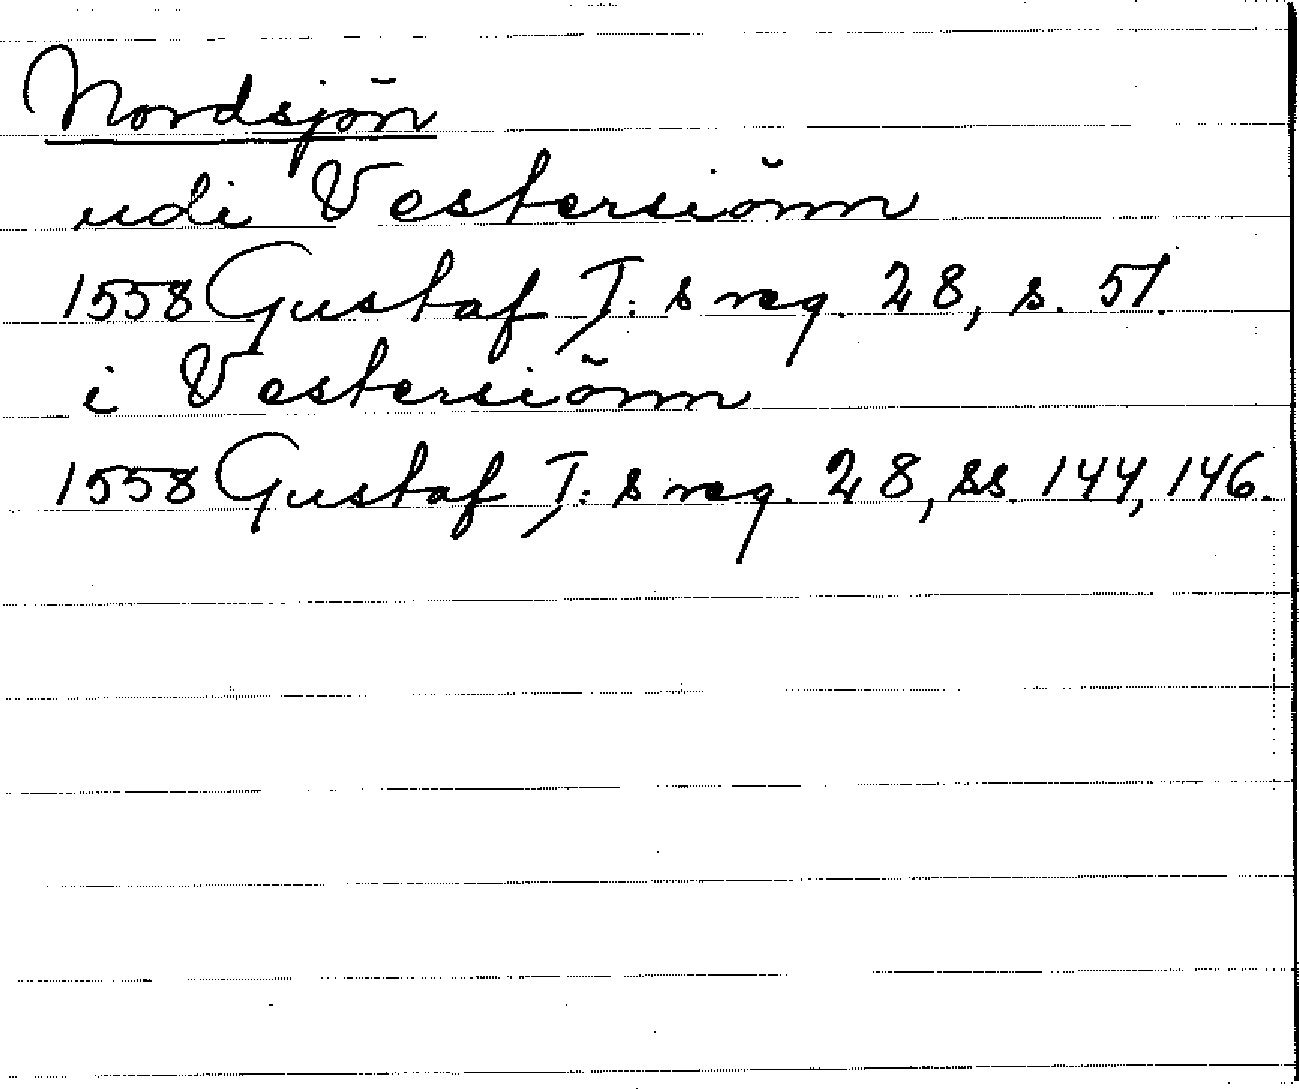 Nordsjön
udi Vestersiönn
1558 Gustaf I:s reg. 28, s. 51.
i Vestersiönn
1558 Gustaf I:s reg. 28, ss. 144, 146.